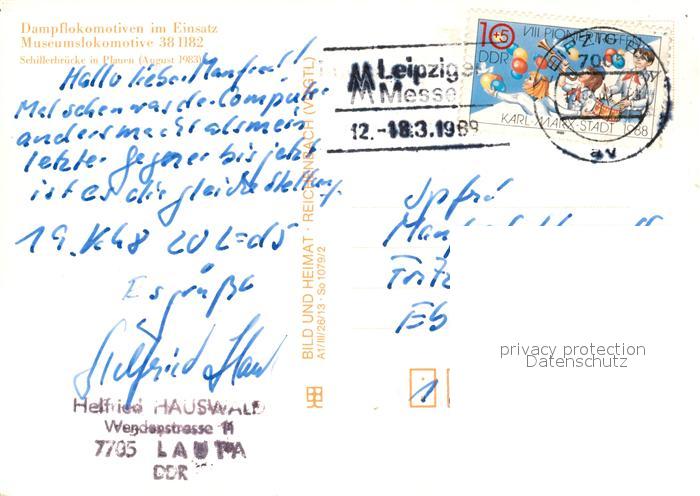 Dampflokomotiven im Einsatz
Museumslokomotive 38 1182
Schillerbrücke in Plauen (August 1983)
Hallo lieber Manfred!
Mal sehen was de Computer
anders macht als mein
letzter Gegner bis jetzt
ist es die gleiche Stellung.
19. Kh8 20
Es grüßt
Helfried HAUSWALD
Wendenstrasse 11
7705 LAUTA
DDR
BILD UND HEIMAT · REICHENBACH (VOGTL)
A1/III/26/13 · So 1079/2
Leipziger
Messe
12.-18.3.1989
LEIPZIG
7000
10+5
DDR
VIII. PIONIERTREFFEN
KARL-MARX-STADT 1988
Spfrd
Fritz
Eb
1
privacy protection
Datenschutz